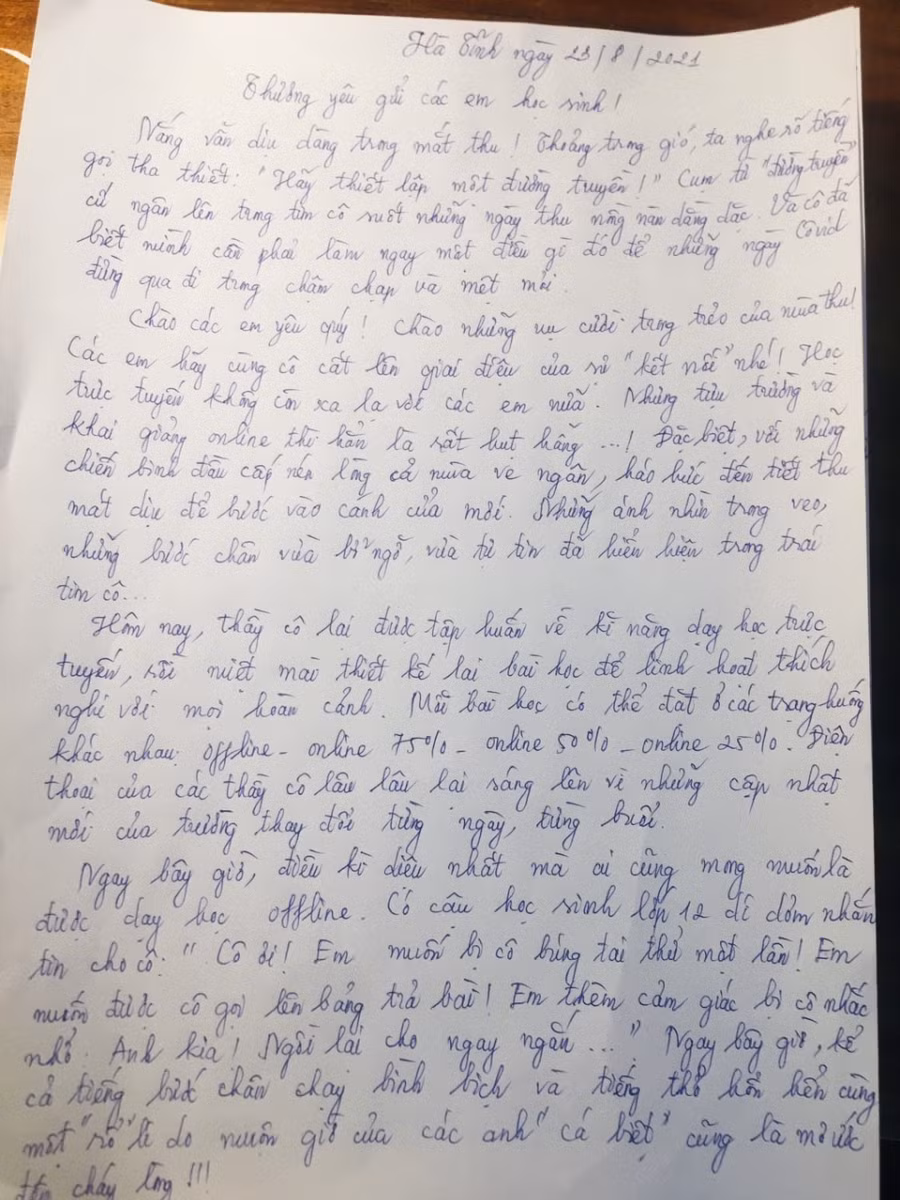 Hà Tĩnh ngày 23/8/2021
Thương yêu gửi các em học sinh!
Nắng vẫn dịu dàng trong mắt thu! Thoảng trong gió, ta nghe rõ tiếng
gọi tha thiết: "Hãy thiết lập một đường truyền!" Cụm từ "đường truyền"
cứ ngân lên trong tim cô suốt những ngày thu nồng nàn dằng dặc. Và cô đã
biết mình cần phải làm ngay một điều gì đó để những ngày Covid
đừng qua đi trong chậm chạp và mệt mỏi.
Chào các em yêu quý! Chào những nụ cười trong trẻo của mùa thu!
Các em hãy cùng cô cất lên giai điệu của sự "kết nối" nhé! Học
trực tuyến không còn xa lạ với các em nữa. Nhưng tựu trường và
khai giảng online thì hẳn là rất hụt hẫng ...! Đặc biệt, với những
chiến binh đầu cấp nén lòng cả mùa ve ngân, háo hức đến tiết thu
mát dịu để bước vào cánh cửa mới. Những ánh nhìn trong veo,
những bước chân vừa bỡ ngỡ, vừa tự tin đã hiển hiện trong trái
tim cô...
Hôm nay, thầy cô lại được tập huấn về kĩ năng dạy học trực
tuyến, rồi miệt mài thiết kế lại bài học để linh hoạt thích
nghi với mọi hoàn cảnh. Mỗi bài học có thể đặt ở các trạng huống
khác nhau: offline - online 75% - online 50% - online 25%. Điện
thoại của các thầy cô lâu lâu lại sáng lên vì những cập nhật
mới của trường thay đổi từng ngày, từng buổi.
Ngay bây giờ, điều kì diệu nhất mà ai cũng mong muốn là
được dạy học offline. Có cậu học sinh lớp 12 dí dỏm nhắn
tin cho cô: "Cô ơi! Em muốn bị cô búng tai thử một lần! Em
muốn được cô gọi lên bảng trả bài! Em thèm cảm giác bị cô nhắc
nhở: Anh kia! Ngồi lại cho ngay ngắn ..." Ngay bây giờ, kể
cả tiếng bước chân chạy bình bịch và tiếng thở hổn hển cùng
một "rổ" lí do muộn giờ của các anh "cá biệt" cũng là mơ ước
đến cháy lòng!!!